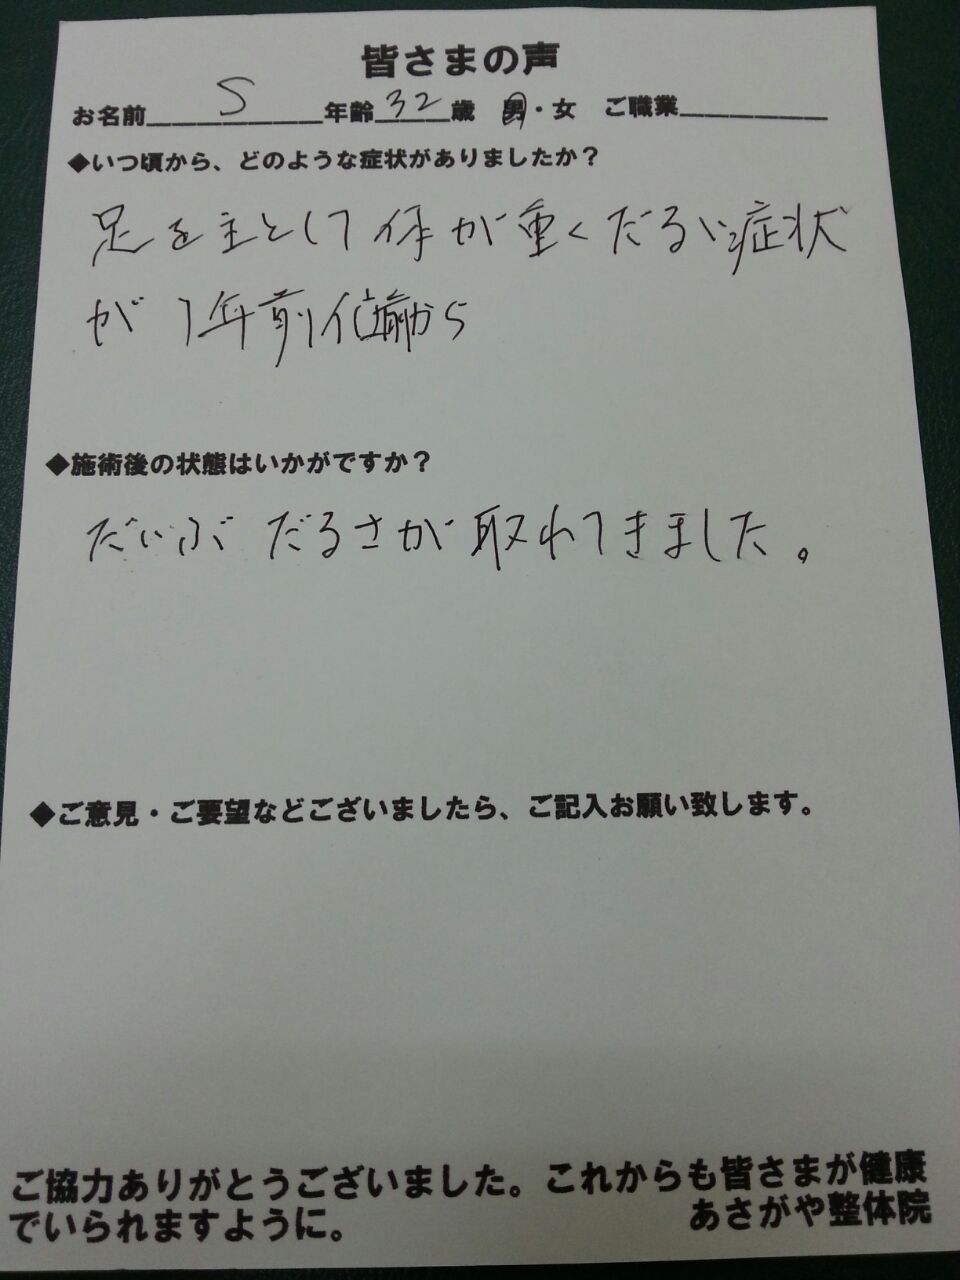 皆さまの声
お名前 S 年齢 32 歳 男・女 ご職業
◆いつ頃から、どのような症状がありましたか？
足を主として体が重くだるい症状
が1年前 から
◆施術後の状態はいかがですか？
だいぶ だるさが取れてきました。
◆ご意見・ご要望などございましたら、ご記入お願い致します。
ご協力ありがとうございました。これからも皆さまが健康
でいられますように。 あさがや整体院